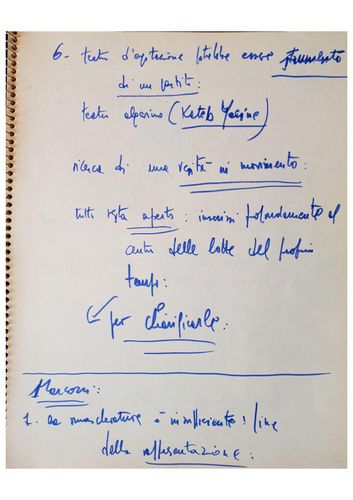 6 - teatro d'agitazione potrebbe essere strumento
di un partito:
teatro algerino (Kateb Yacine)
ricerca di una verità in movimento:
tutto resta aperto: inserirsi profondamente al
centro delle lotte del proprio
tempo:
per chiarificarle:
Marconi:
1. la mascheratura è insufficiente: fine
della rappresentazione: